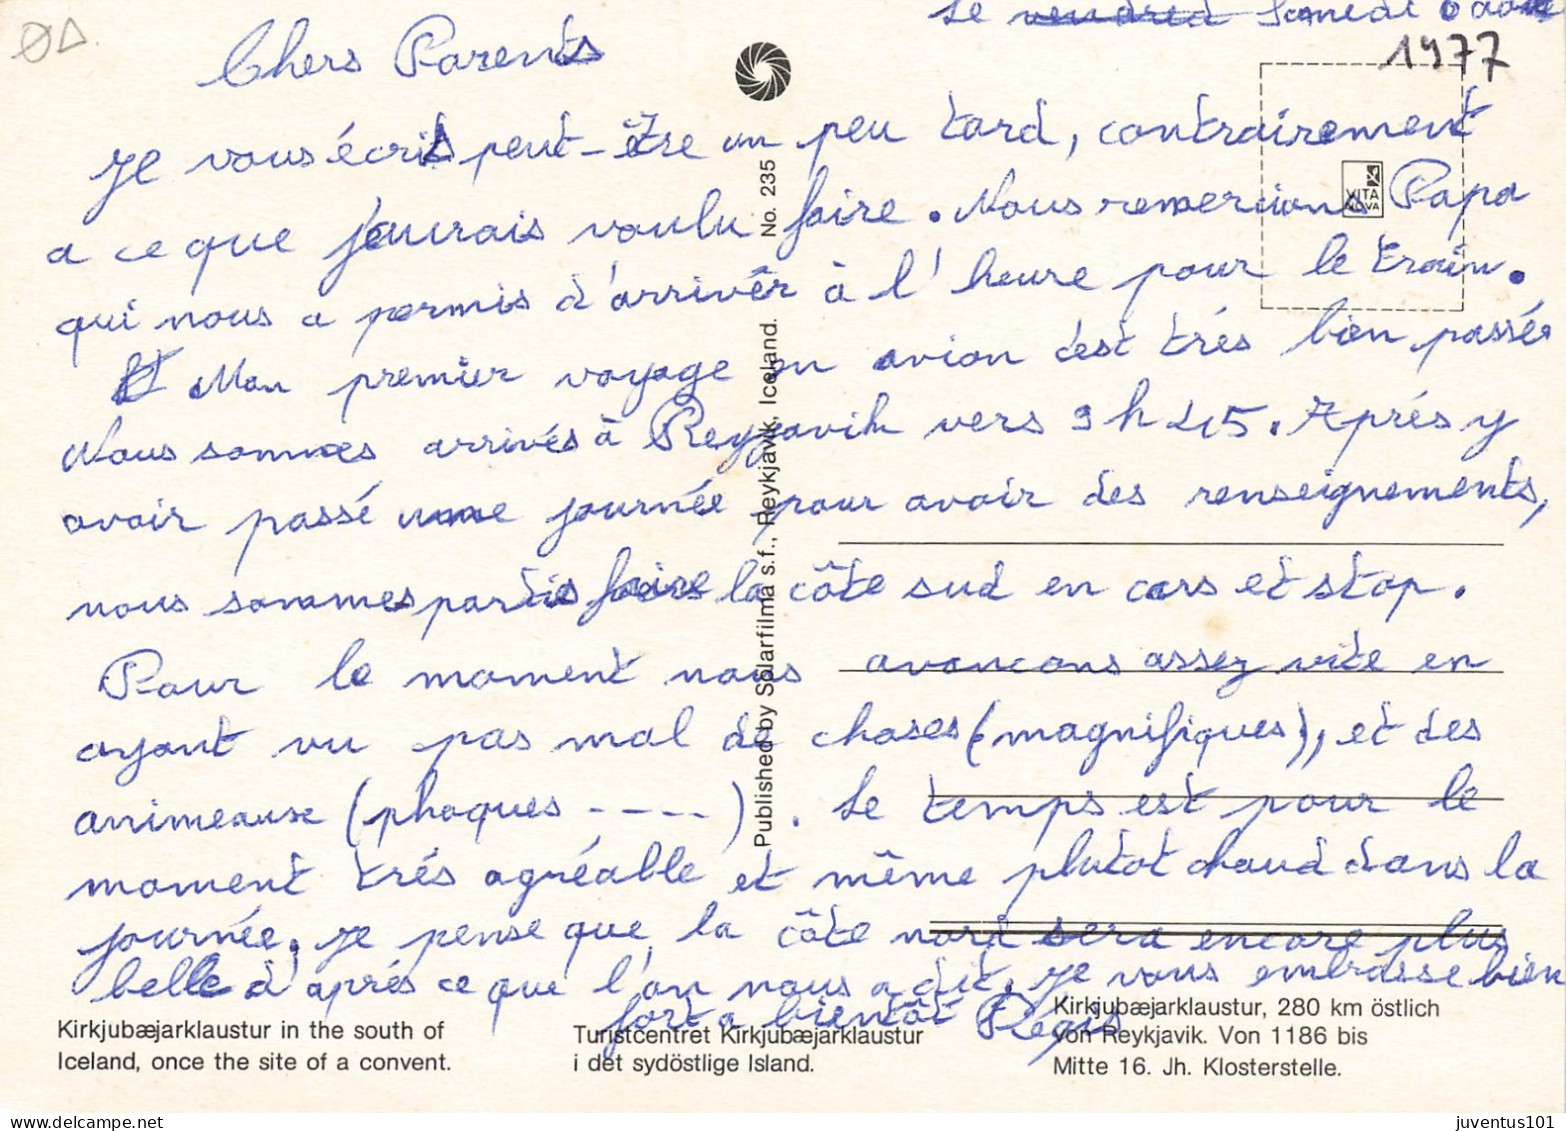 Le vendredi Samedi 6 août
1977
Chers Parents
je vous écris peut-être un peu tard, contrairement
a ce que j'aurais voulu faire. Nous remercions Papa
qui nous a permis d'arrivêr à l'heure pour le train.
Mon premier voyage en avion c'est trés bien passée
Nous sommes arrivés à Reyjavik vers 9h45. Aprés y
avoir passé une journée pour avoir des renseignements,
nous sommes partis faire la côte sud en cars et stop.
Pour le moment nous avancons assez vite en
ayant vu pas mal de choses (magnifiques), et des
animeaux (phoques ----). Le temps est pour le
moment trés agréable et même plutot chaud dans la
journée. je pense que la côte nord sera encore plus
belle d'aprés ce que l'on nous a dit. je vous embrasse bien
fort a bientôt Régis
No. 235
Published by Solarfilma s.f., Reykjavik, Iceland.
VITA
NOVA
Kirkjubæjarklaustur in the south of
Iceland, once the site of a convent.
Turistcentret Kirkjubæjarklaustur
i det sydöstlige Island.
Kirkjubæjarklaustur, 280 km östlich
von Reykjavik. Von 1186 bis
Mitte 16. Jh. Klosterstelle.
juventus101